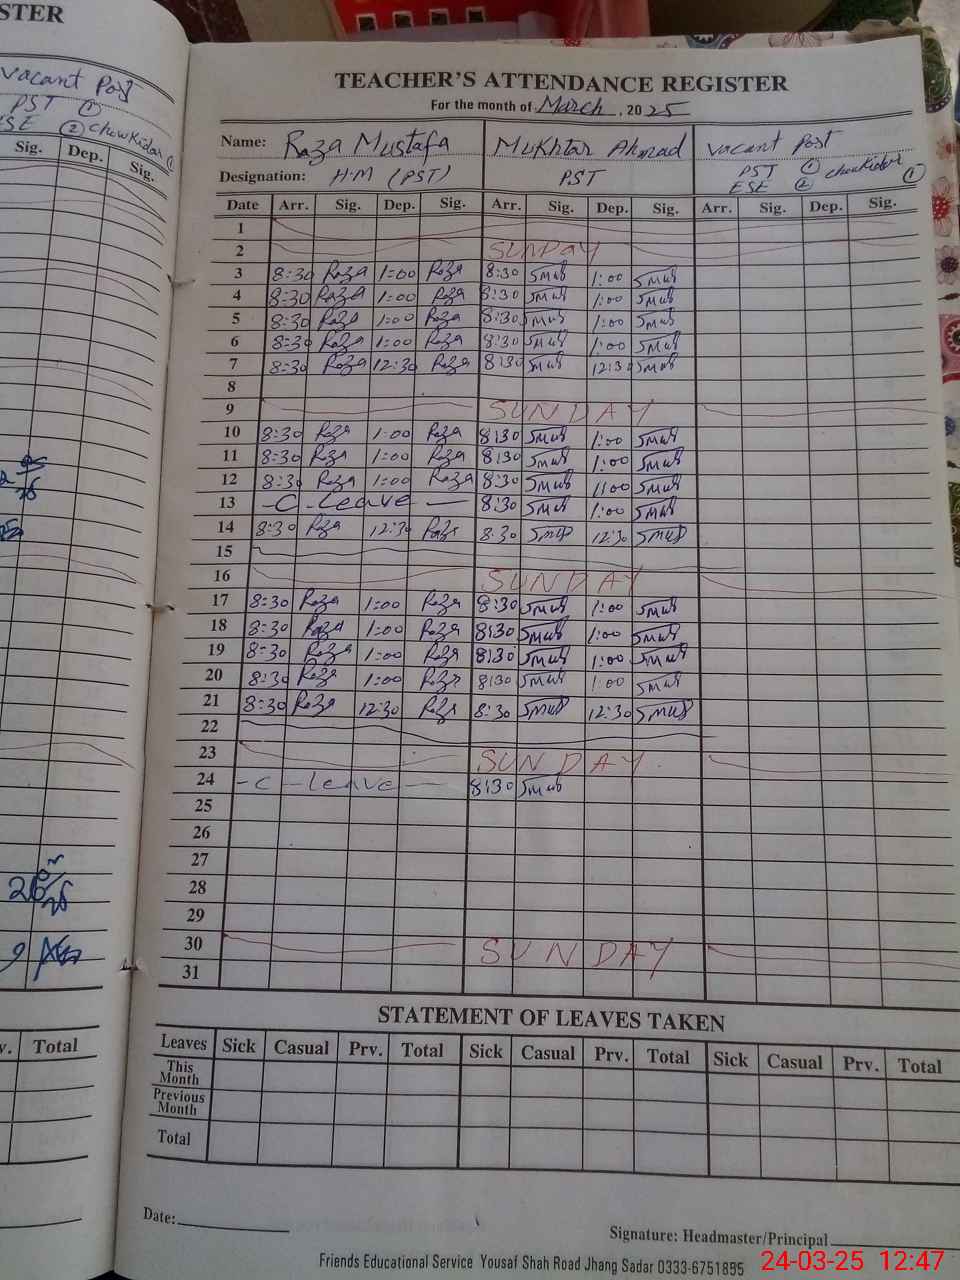 STER
vacant Post
PST ①
ESE ② chowkidar ①
Sig. Dep. Sig.
v. Total
TEACHER'S ATTENDANCE REGISTER
For the month of March, 2025
Name: Raza Mustafa Mukhtar Ahmad vacant Post
Designation: H.M (PST) PST PST ① chowkidar ①
ESE ②
Date Arr. Sig. Dep. Sig. Arr. Sig. Dep. Sig. Arr. Sig. Dep. Sig.
1
2 SUNDAY
3 8:30 Raza 1:00 Raza 8:30 1:00
4 8:30 Raza 1:00 Raza 8:30 1:00
5 8:30 Raza 1:00 Raza 8:30 1:00
6 8:30 Raza 1:00 Raza 8:30 1:00
7 8:30 Raza 12:30 Raza 8:30 12:30
8
9 SUNDAY
10 8:30 Raza 1:00 Raza 8:30 1:00
11 8:30 Raza 1:00 Raza 8:30 1:00
12 8:30 Raza 1:00 Raza 8:30 1:00
13 - C - Leave - 8:30 1:00
14 8:30 Raza 12:30 Raza 8:30 12:30
15
16 SUNDAY
17 8:30 Raza 1:00 Raza 8:30 1:00
18 8:30 Raza 1:00 Raza 8:30 1:00
19 8:30 Raza 1:00 Raza 8:30 1:00
20 8:30 Raza 1:00 Raza 8:30 1:00
21 8:30 Raza 12:30 Raza 8:30 12:30
22
23 SUNDAY
24 - C - Leave - 8:30
25
26
27
28
29
30 SUNDAY
31
STATEMENT OF LEAVES TAKEN
Leaves Sick Casual Prv. Total Sick Casual Prv. Total Sick Casual Prv. Total
This Month
Previous Month
Total
Date:
Signature: Headmaster/Principal
Friends Educational Service Yousaf Shah Road Jhang Sadar 0333-6751895
24-03-25 12:47